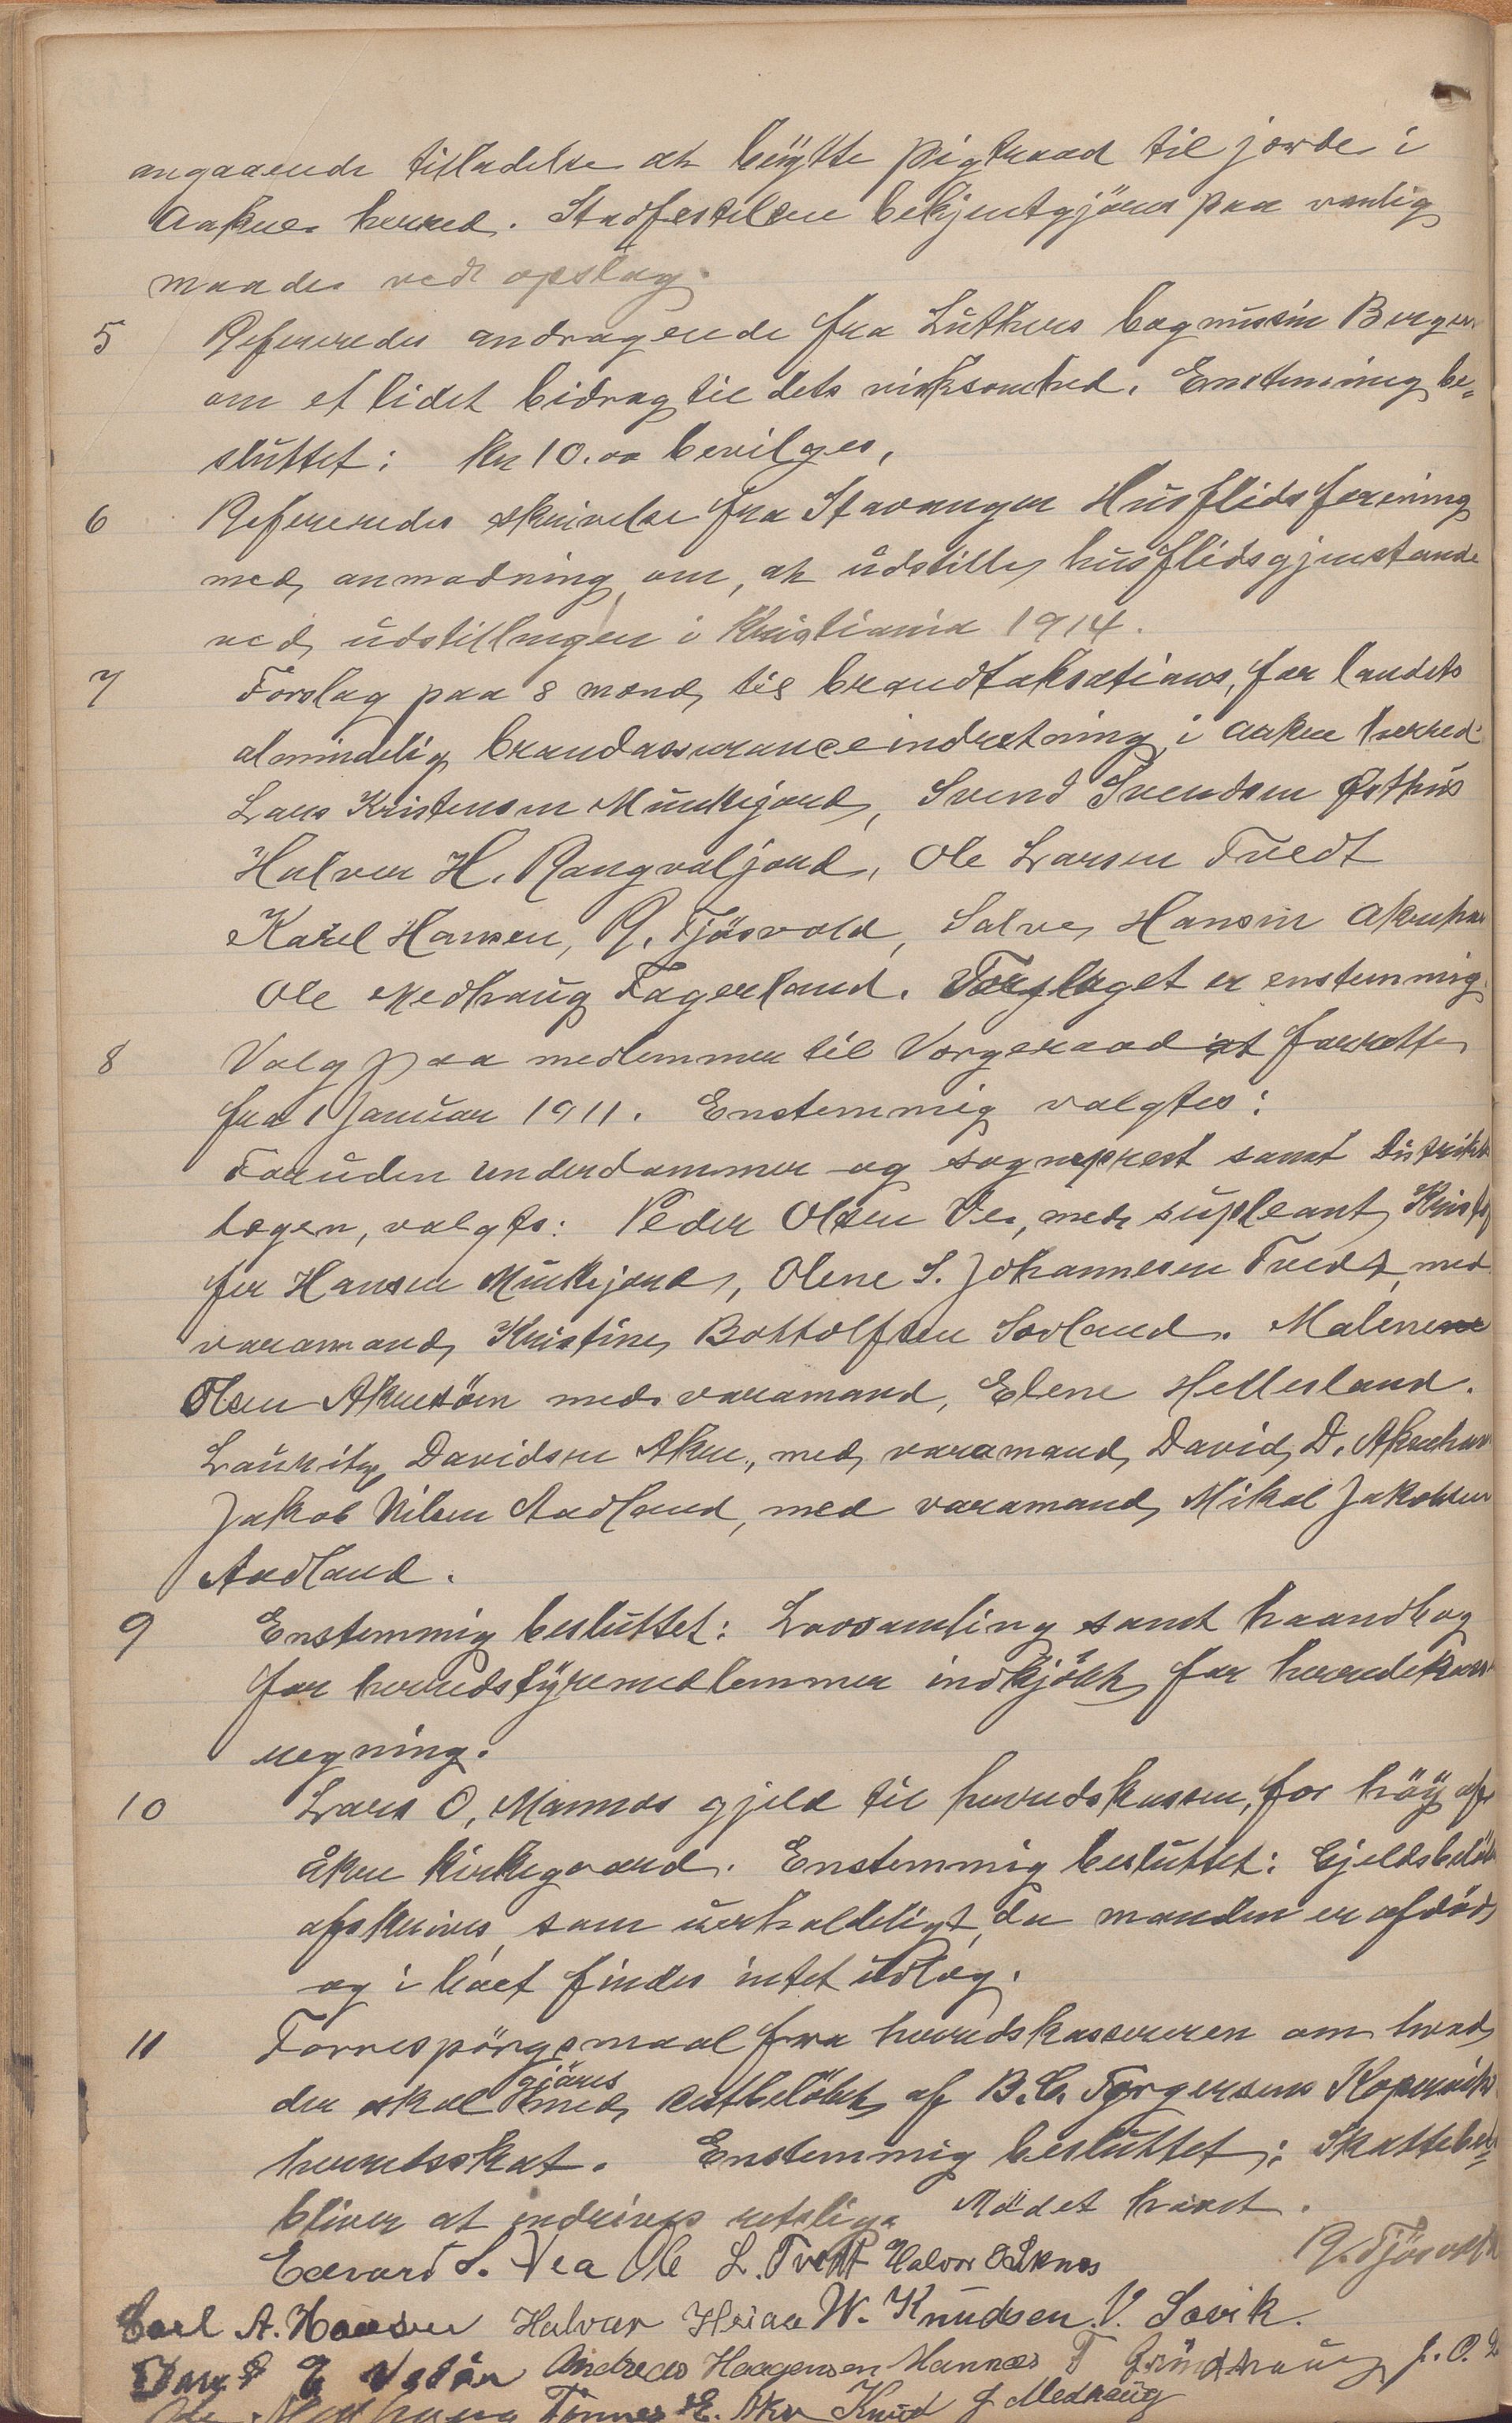 angaaende tilladelse at benytte pigtraad til jorder i
Aakre herred. Stadfestelsen bekjentgjöres paa vanlig
maade ved opslag.
5 Refereredes andragende fra Luthers Bergen
om et lidet bidrag til dets virksomhed. Enstemmig be-
sluttet: Kr 10.00 bevilges,
6 Refereredes skrivelse fra Stavanger Husflidsforening
med anmodning om, at udstille husflidsgjenstande
ved udstillingen i Kristiania 1914.
7 Forslag paa 8 mænd til brandtakstations, for landets
almindelig brandassuranceindretning i Aakre herred
Lars Kristensen Munkejord, Svend Svendsen Østhus
Halvor H. Rangvaljord, Ole Larsen Tvedt
Karel Hansen, R. Tjösvold, Salve Hansen Akrehavn
Ole Medhaug Fagerland. Forslaget er enstemmig.
8 Valg paa medlemmer til Vergeraad at forrette
fra 1 Januar 1911. Enstemmig valgtes:
Foruden underdommer og sogneprest samt Distrikts
lægen, valgts: Peder Olsen Ve, med supleant Kristof
fer Hansen Munkejord, Olene S. Johannesen Tvedt med
varamand Kristine Bottolfsen Sævland. Malene
Olsen Akresöen med varamand, Elene Hellesland.
Lauritz Davidsen Akre, med varamand David D. Akrehavn
Jakob Nilsen Aadland, med varamand Mikal Jakobsen
Aadland.
9 Enstemmig besluttet: Lovsamling samt haandbog
for herredstyremedlemmer indkjöbt for herredskassens
regning.
10 Lars O. Mannes gjeld til herredskassen, for höy af
åkre kirkegaard. Enstemmig besluttet: Gjeldsbelöbet
afskrives som uerholdeligt, da manden er afdöd
og i boet findes intet udlæg.
11 Forrespörgsmaal fra herredskassereren om hvad
der skal gjöres med restbelöbet af B. C. Torgersens Kopervik
herredsskat. Enstemmig besluttet: Skattebel-
bliver at indrives retslige. Mödet hævet.
Edevard S. Vea Ole L. Tvedt Halvor O Liknes R. Tjösvold
Carl A. Hansen Halvor W. Knudsen. V. Sævik.
Andreas Haagensen Mannes T Grindhaug J. O.
Ole Medhaug Tönnes E. Akre Knud J Medhaug